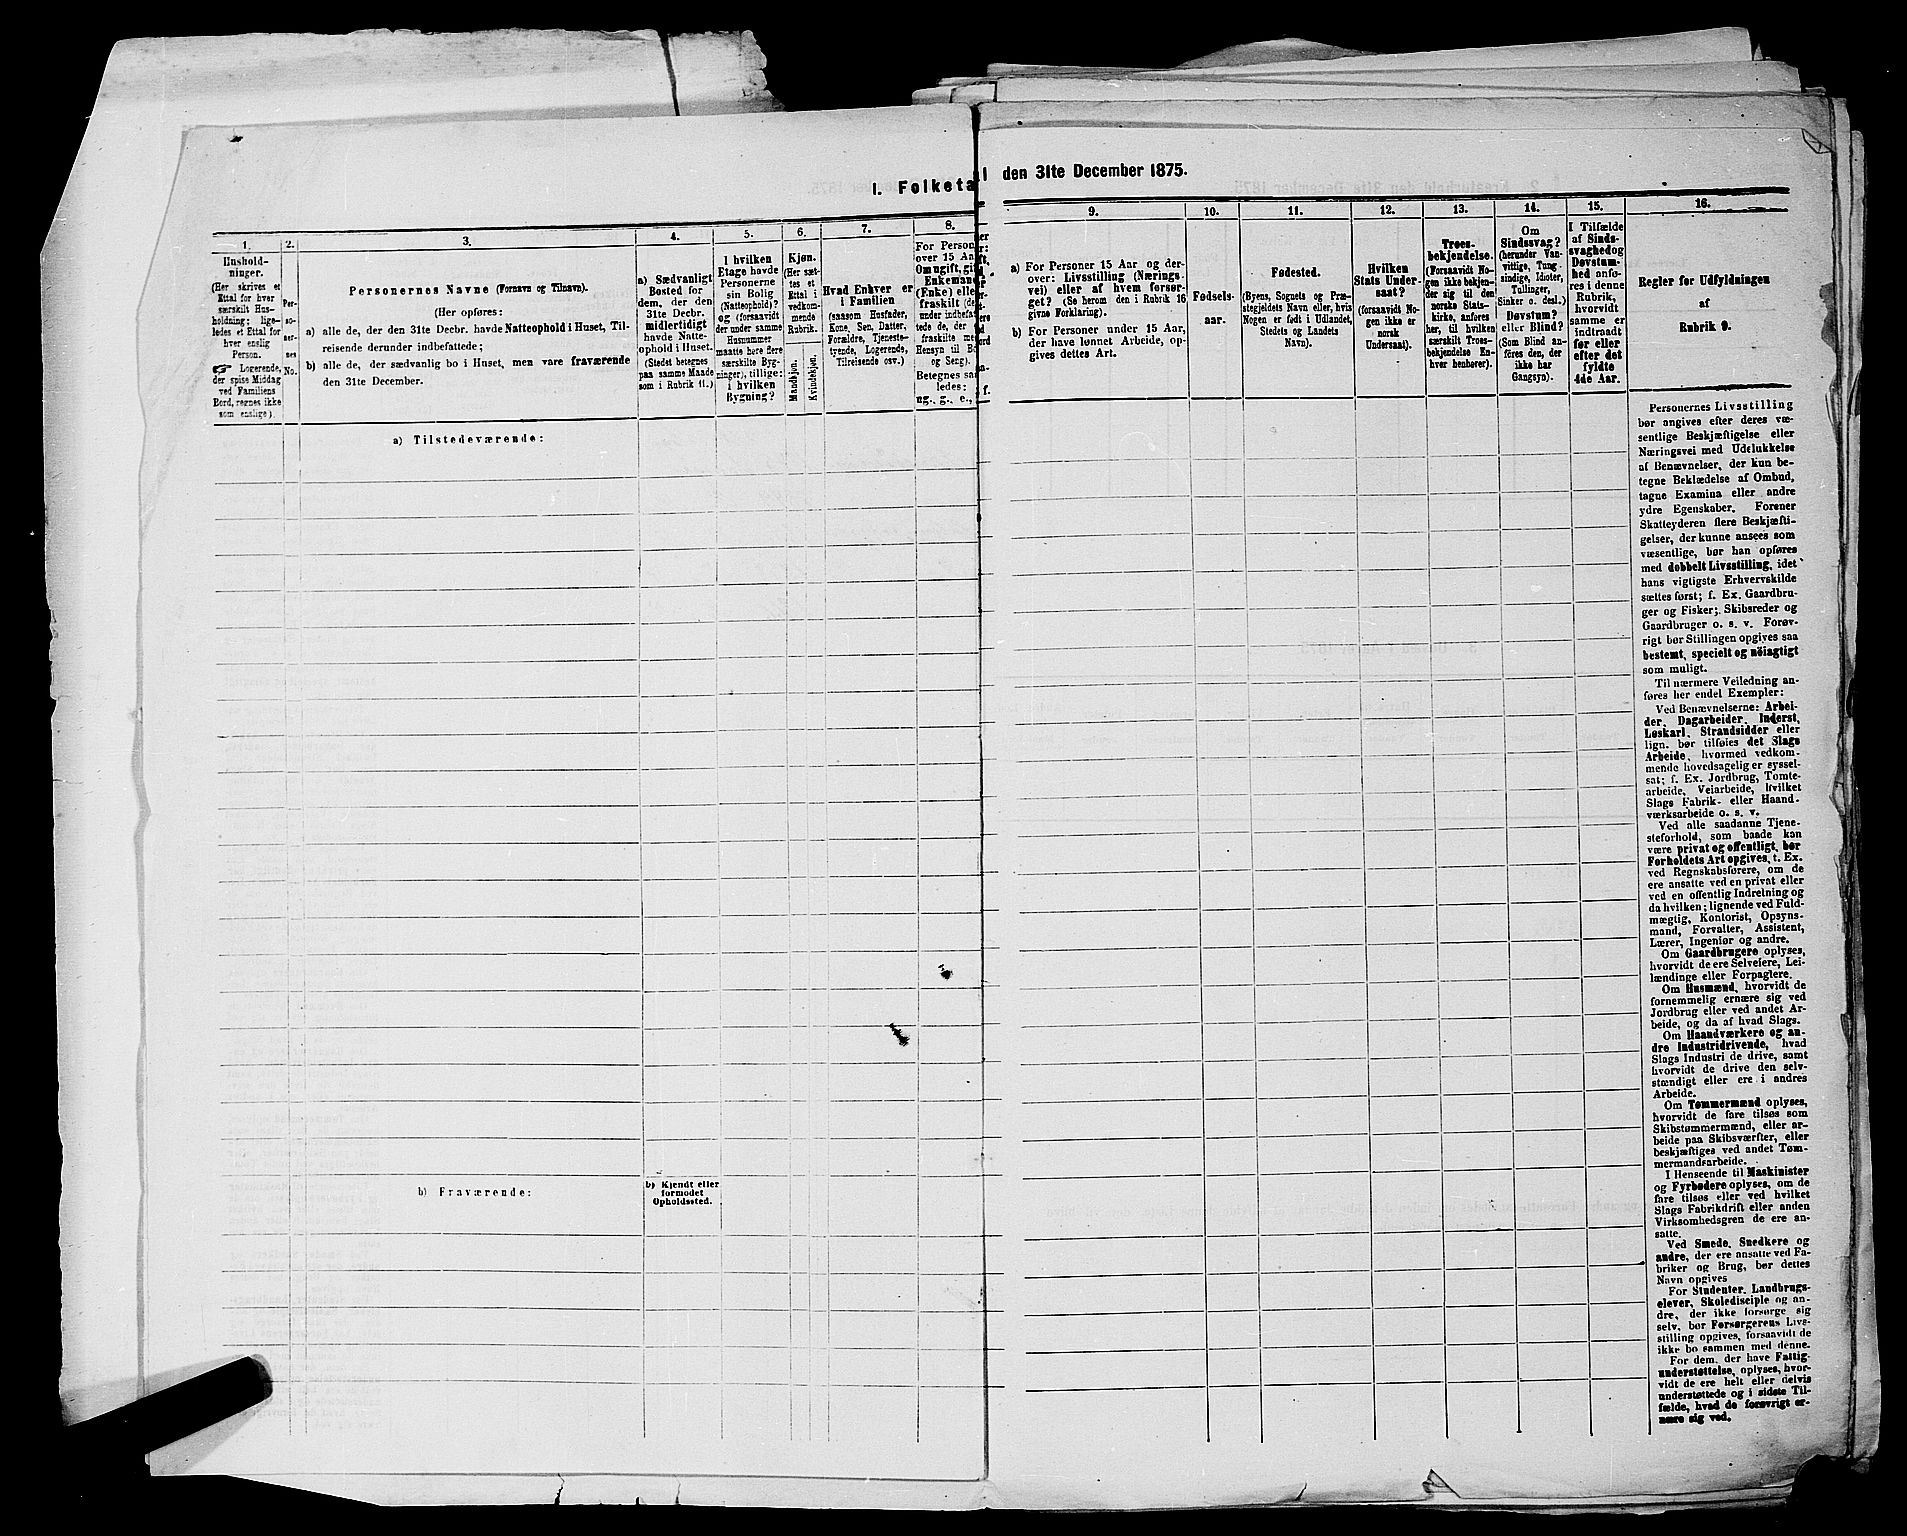 I. Folketal den 31te December 1875.
1.
Hushold-
ninger.
(Her skrives et
Ettal for hver
særskilt Hus-
holdning; lige-
ledes et Ettal for
hver enslig
Person.
☛ Logerende,
der spise Middag
ved Familiens
Bord, regnes ikke
som enslige).
2.
Per-
so-
ner-
nes
No.
3.
Personernes Navne (Fornavn og Tilnavn).
(Her opføres:
a) alle de, der den 31te Decbr. havde Natteophold i Huset, Til-
reisende derunder indbefattede;
b) alle de, der sædvanlig bo i Huset, men vare fraværende
den 31te December.
4.
a) Sædvanligt
Bosted for
dem, der den
31te Decbr.
midlertidigt
havde Natte-
ophold i Huset.
(Stedet betegnes
paa samme Maade
som i Rubrik 11.)
5.
I hvilken
Etage havde
Personerne
sin Bolig
(Natteophold)?
og (forsaavidt
der under samme
Husnummer
maatte høre flere
særskilte Byg-
ninger), tillige:
i hvilken
Bygning?
6.
Kjøn.
(Her sæt-
tes et
Ettal i
vedkom-
mende
Rubrik.
Mandkjøn.
Kvindekjøn.
7.
Hvad Enhver er
i Familien
(saasom Husfader,
Kone, Søn, Datter,
Forældre, Tjeneste-
tyende, Logerende,
Tilreisende osv.)
8.
For Person
over 15 Aa
Om ugift, gif
Enkemand
(Enke) elle
fraskilt (de
under indbefat-
tede de, der
fraskilte me
Hensyn til Bo
og Seng).
Betegnes sa
ledes:
ug., g., e., f.
9.
a) For Personer 15 Aar og der-
over: Livsstilling (Nærings-
vei) eller af hvem forsør-
get? (Se herom den i Rubrik 16
givne Forklaring).
b) For Personer under 15 Aar,
der have lønnet Arbeide, op-
gives dettes Art.
10.
Fødsels-
aar.
11.
Fødested.
(Byens, Sognets og Præ-
stegjeldets Navn eller, hvis
Nogen er født i Udlandet,
Stedets og Landets
Navn).
12.
Hvilken
Stats Under-
saat?
(forsaavidt No-
gen ikke er
norsk
Undersaat).
13.
Troes-
bekjendelse.
(Forsaavidt No-
gen ikke bekjen-
der sig til den
norske Stats-
kirke, anføres
her, til hvilken
særskilt Troes-
bekjendelse En-
hver henhører).
14.
Om
Sindssvag?
(herunder Van-
vittige, Tung-
sindige, Idioter,
Tullinger,
Sinker o. desl.)
Døvstum?
eller Blind?
(Som Blind an-
føres den, der
ikke har
Gangsyn).
15.
I Tilfælde
af Sinds-
svaghed og
Døvstum-
hed anfø-
res i denne
Rubrik,
hvorvidt
samme er
indtraadt
før eller
efter det
fyldte
4de Aar.
16.
Regler for Udfyldningen
af
Rubrik 9.
Personernes Livsstilling
bør angives efter deres væ-
sentlige Beskjæftigelse eller
Næringsvei med Udelukkelse
af Benævnelser, der kun be-
tegne Beklædelse af Ombud,
tagne Examina eller andre
ydre Egenskaber. Forener
Skatteyderen flere Beskjæfti-
gelser, der kunne ansees som
væsentlige, bør han opføres
med dobbelt Livsstilling, idet
hans vigtigste Erhvervskilde
sættes først; f. Ex. Gaardbru-
ger og Fisker; Skibsreder og
Gaardbruger o. s. v. Forøv-
rigt bør Stillingen opgives saa
bestemt, specielt og nøiagtigt
som muligt.
Til nærmere Veiledning an-
føres her endel Exempler:
Ved Benævnelserne: Arbei-
der, Dagarbeider, Inderst,
Løskarl, Strandsidder eller
lign. bør tilføies det Slags
Arbeide, hvormed vedkom-
mende hovedsagelig er syssel-
sat; f. Ex. Jordbrug, Tomte-
arbeide, Veiarbeide, hvilket
Slags Fabrik- eller Haand-
værksarbeide o. s. v.
Ved alle saadanne Tjene-
steforhold, som baade kan
være privat og offentligt, bør
Forholdets Art opgives, t. Ex.
ved Regnskabsførere, om de
ere ansatte ved en privat eller
ved en offentlig Indretning og
da hvilken; lignende ved Fuld-
mægtig, Kontorist, Opsyns-
mand, Forvalter, Assistent,
Lærer, Ingeniør og andre.
Om Gaardbrugere oplyses,
hvorvidt de ere Selveiere, Lei-
lændinge eller Forpagtere.
Om Husmænd, hvorvidt de
fornemmelig ernære sig ved
Jordbrug eller ved andet Ar-
beide, og da af hvad Slags.
Om Haandværkere og an-
dre Industridrivende, hvad
Slags Industri de drive, samt
hvorvidt de drive den selv-
stændigt eller ere i andres
Arbeide.
Om Tømmermænd oplyses,
hvorvidt de fare tilsøs som
Skibstømmermænd, eller ar-
beide paa Skibsværfter, eller
beskjæftiges ved andet Tøm-
mermandsarbeide.
I Henseende til Maskinister
og Fyrbødere oplyses, om de
fare tilsøs eller ved hvilket
Slags Fabrikdrift eller anden
Virksomhedsgren de ere an-
satte.
Ved Smede, Snedkere og
andre, der ere ansatte ved Fa-
briker og Brug, bør dettes
Navn opgives
For Studenter, Landbrugs-
elever, Skoledisciple og an-
dre, der ikke forsørge sig
selv, bør Forsørgerens Livs-
stilling opgives, forsaavidt de
ikke bo sammen med denne.
For dem, der have Fattig-
understøttelse, oplyses, hvor-
vidt de ere helt eller delvis
understøttede og i sidste Til-
fælde, hvad de forøvrigt er-
nære sig ved.
a) Tilstedeværende:
b) Fraværende:
b) Kjendt eller
formodet
Opholdssted.